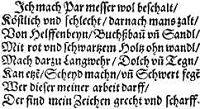 Ich mach Par messer wol beschalt/
Köstlich vnd schlecht/ darnach mans zalt/
Von Helffenbeyn/ Buchßbaū vn̄ Sandl/
Mit rot vnd schwarzem Holz ohn wandl/
Mach darzu Langwehr/ Dolch vn̄ Tegn/
Kan etzt/ Scheyd machn/ vn̄ Schwert fegē
Wer dieser meiner arbeit darff/
Der find mein Zeichen grecht vnd scharff.